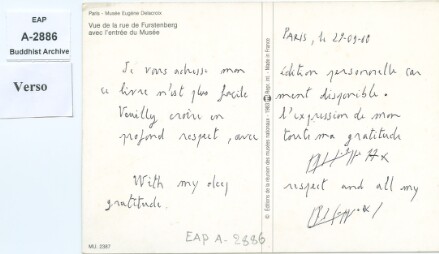 EAP
A-2886
Buddhist Archive
Verso
Paris - Musée Eugène Delacroix
Vue de la rue de Furstenberg
avec l'entrée du Musée
PARIS, le 29-09-80
Je vous adresse mon édition personnelle car
ce livre n'est plus facilement disponible.
Veuillez croire en l'expression de mon
profond respect, avec toute ma gratitude
With my deep respect and all my
gratitude.
EAP A-2886
MU. 2087
© Éditions de la réunion des musées nationaux
Made in France